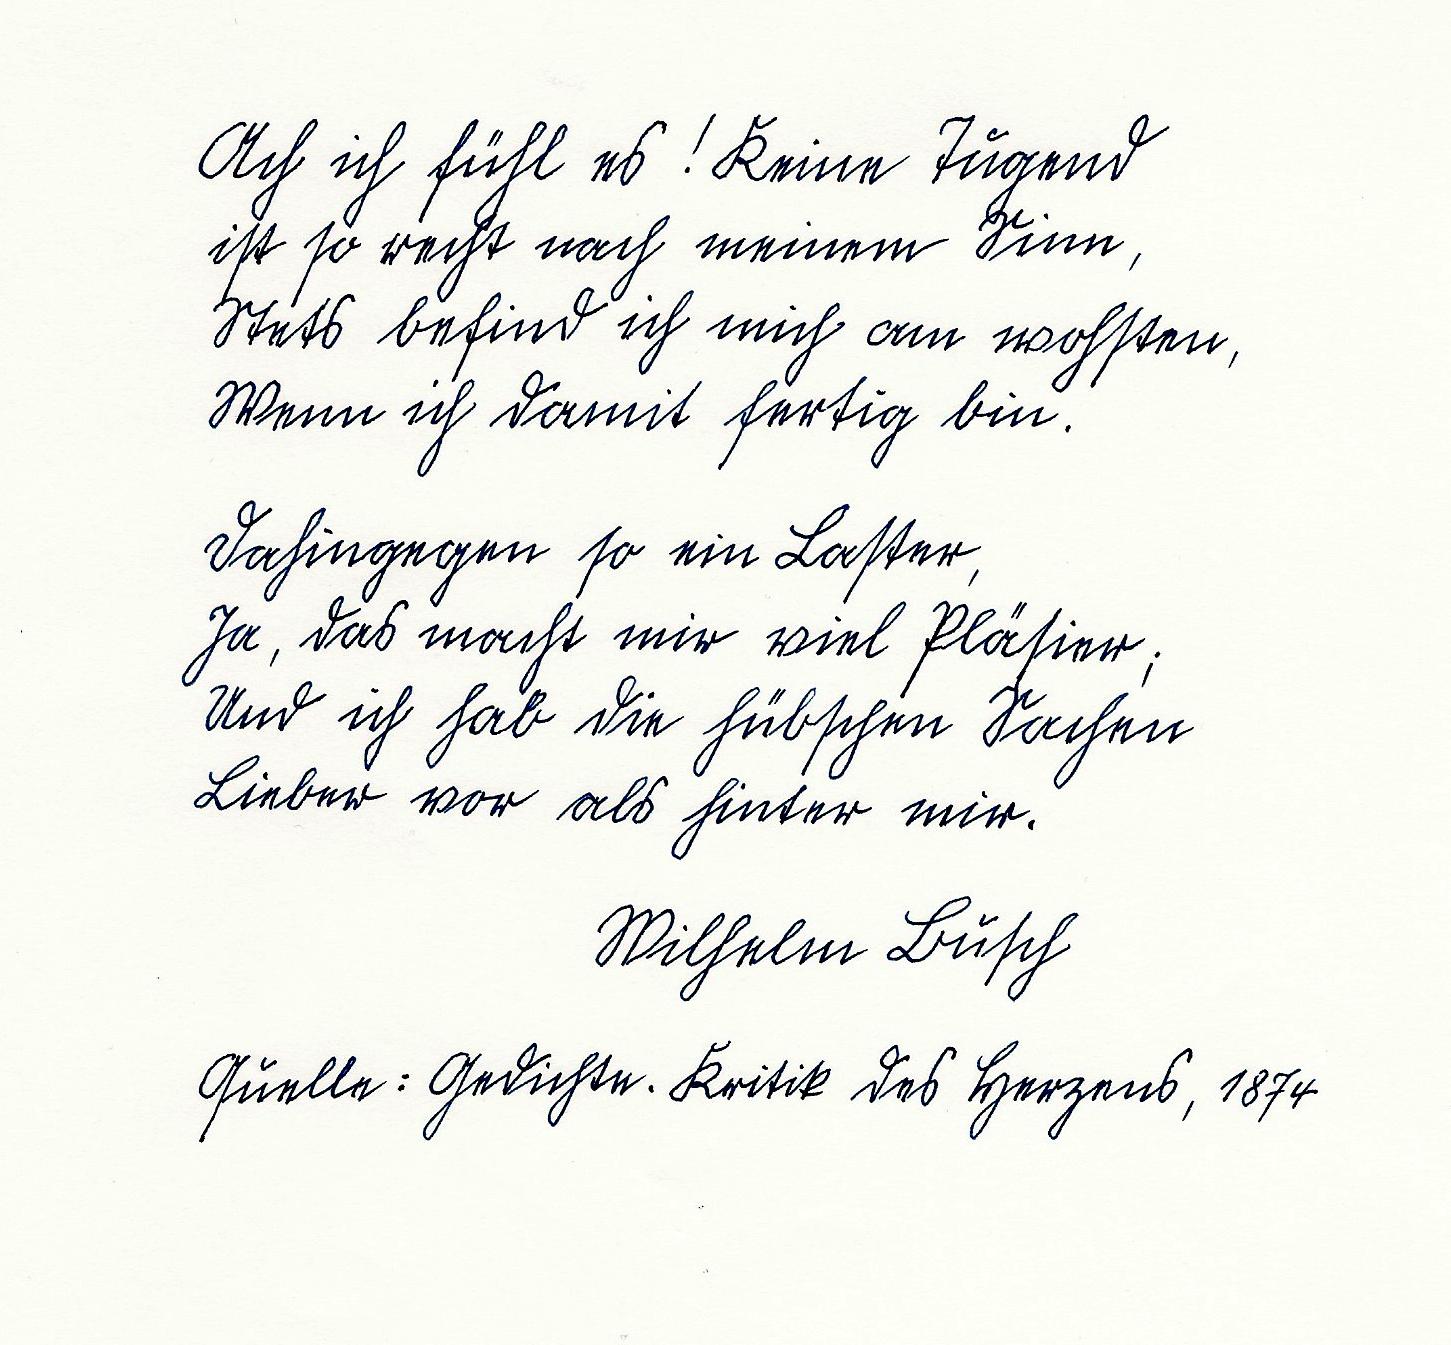 Ach ich fühl es! Keine Tugend
ist so recht nach meinem Sinn,
Stets befind ich mich am wohsten,
Wenn ich damit fertig bin.
Dahingegen so ein Laster,
Ja, das macht mir viel Pläsier;
Und ich hab die hübschen Sachen
Lieber vor als hinter mir.
Wilhelm Busch
Quelle: Gedichte. Kritik des Herzens, 1874